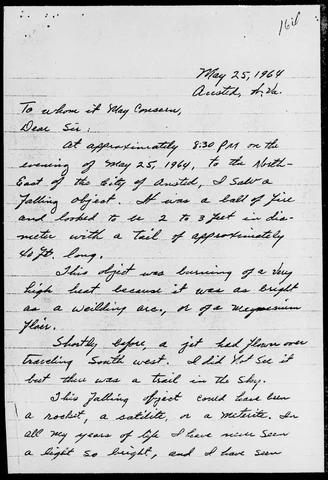 16il
May 25, 1964
Ansted, W.Va.
To whom it May Concern,
Dear Sir:
At approximately 8:30 PM on the
evening of May 25, 1964, to the North-
East of the City of Ansted, I Saw a
falling object. It was a ball of fire
and looked to be 2 to 3 feet in dia-
meter with a tail of approximately
40 ft. long.
This objet was burning of a very
high heat because it was as bright
as a weilding arc, or of a
flair.
Shortly before, a jet had flown over
traveling South west. I did Not See it
but there was a trail in the Sky.
This falling object could have been
a rocket, a satilite, or a Meterite. In
all my years of life I have never seen
a light so bright, and I have seen